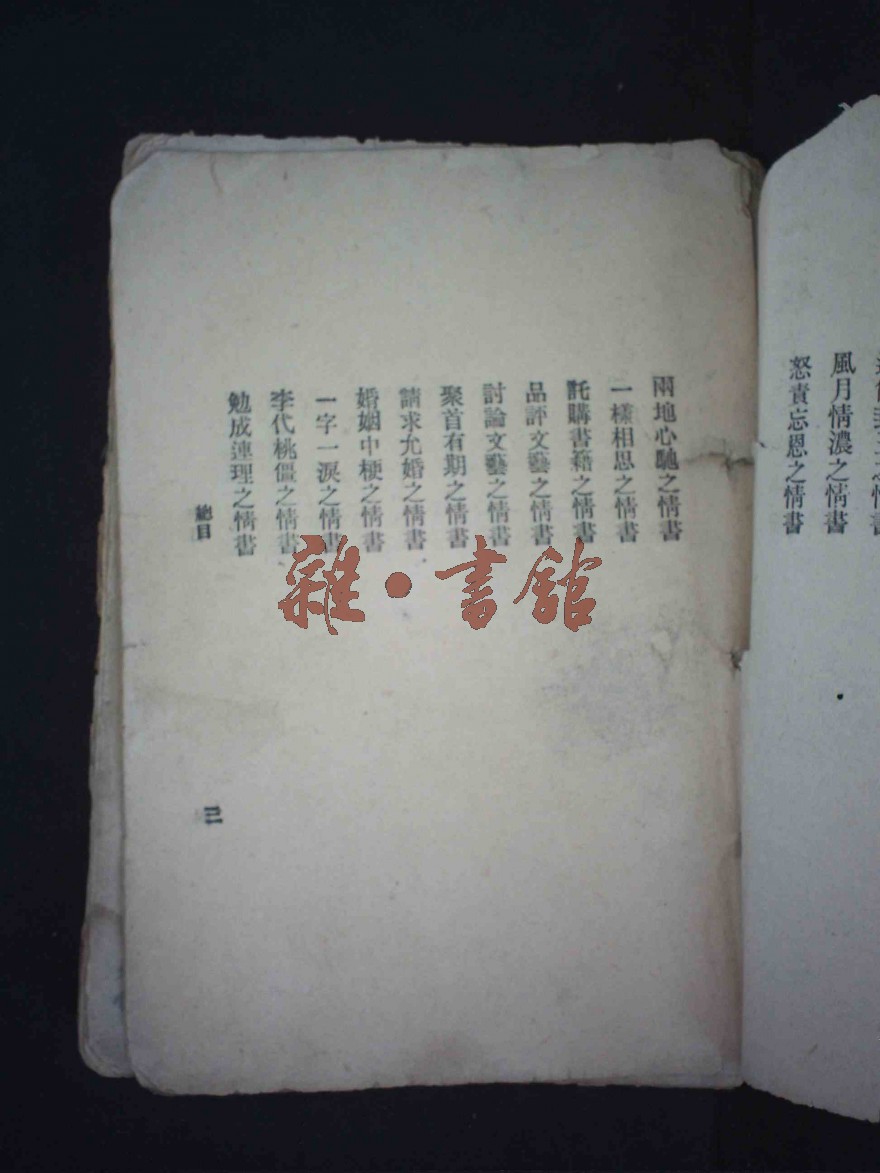 怒責忘恩之情書
風月情濃之情書
兩地心馳之情書
一樣相思之情書
託購書籍之情書
品評文藝之情書
討論文藝之情書
聚首有期之情書
請求允婚之情書
婚姻中梗之情書
一字一淚之情書
李代桃僵之情書
勉成連理之情書
總目
三
雜·書館